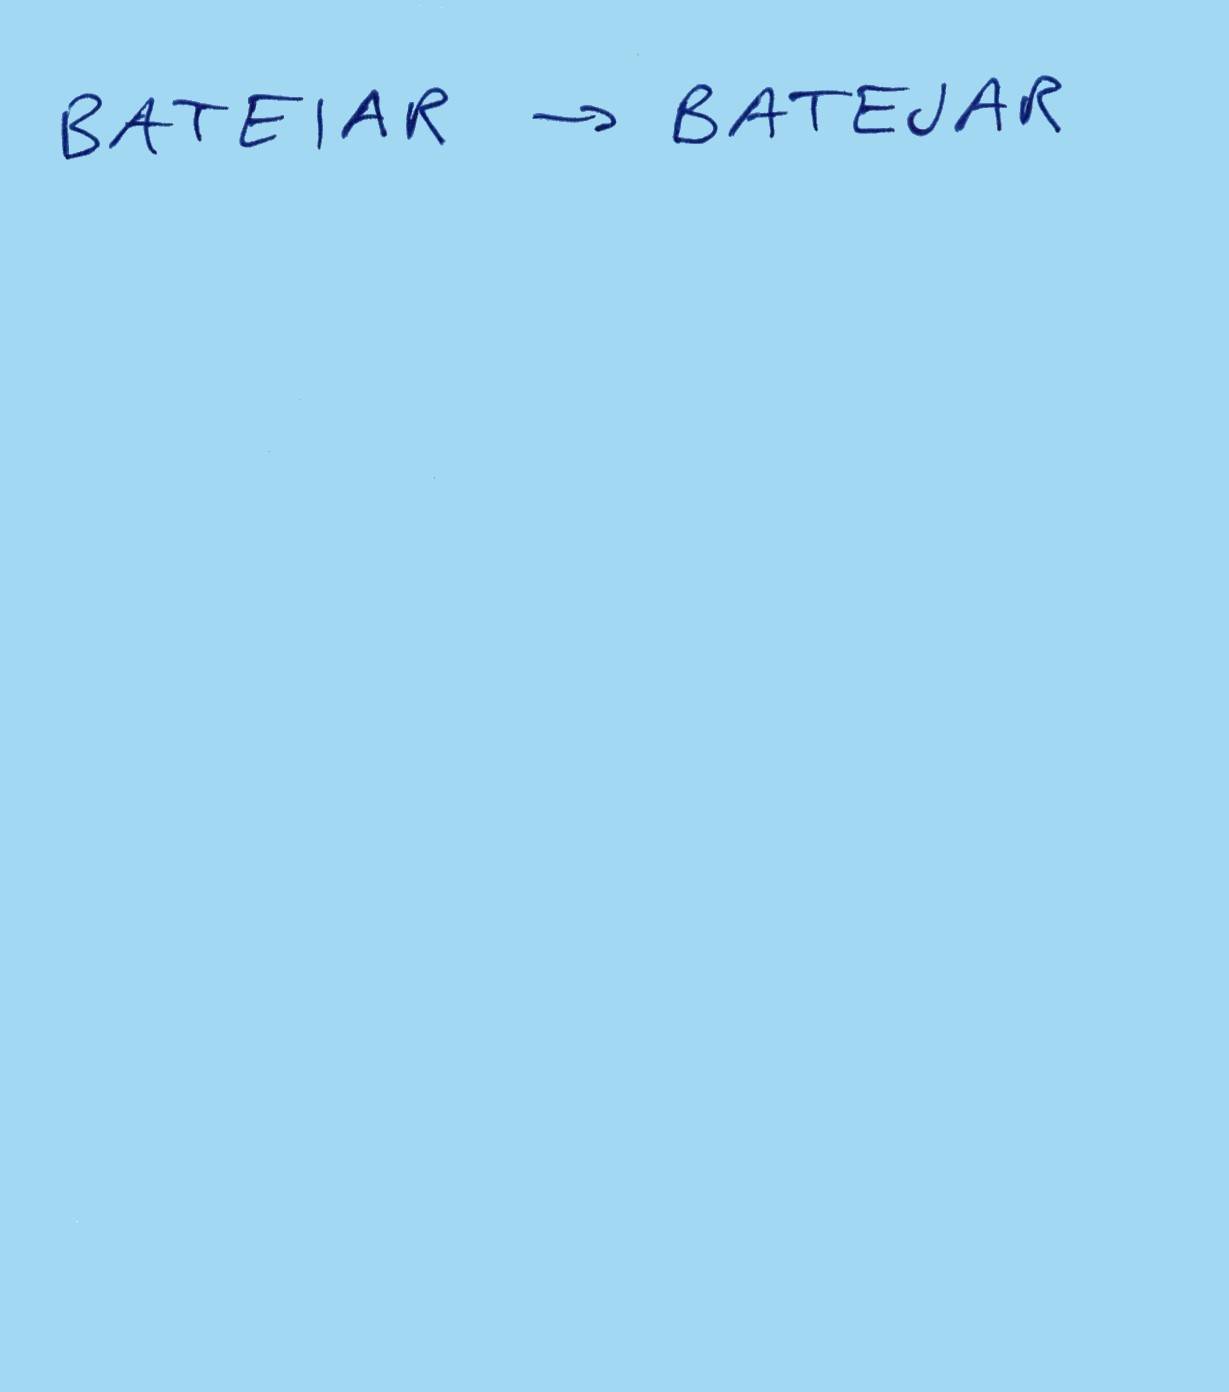 BATEIAR → BATEJAR